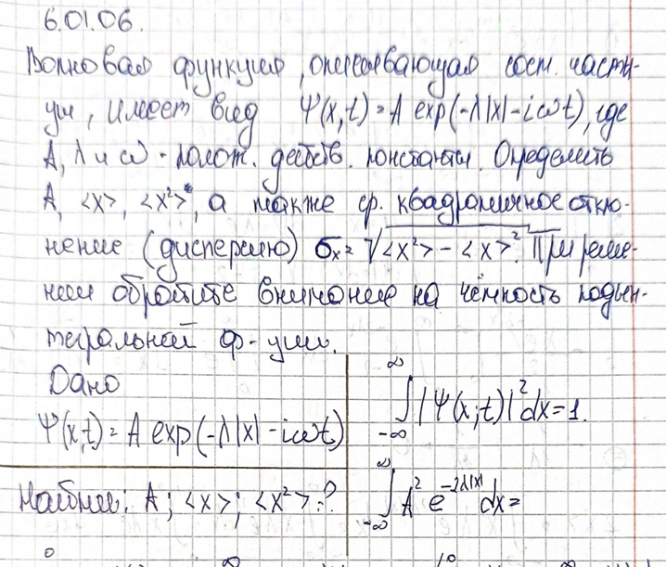 6.01.06.
Волновая функция, описывающая сост. части-
цы, имеет вид Ψ(x,t) = A exp(-λ|x| - iωt), где
A, λ и ω - полож. действ. константы. Определить
A, <x>, <x²>, а также ср. квадратичное откло-
нение (дисперсию) σx = √<x²> - <x>². При реше-
нии обратите внимание на чётность подын-
тегральной ф-ции.
Дано
Ψ(x,t) = A exp(-λ|x| - iωt)
Найти: A; <x>; <x²> - ?
∞
∫ |Ψ(x;t)|² dx = 1.
-∞
∞
∫ A² e^-2λ|x| dx =
-∞